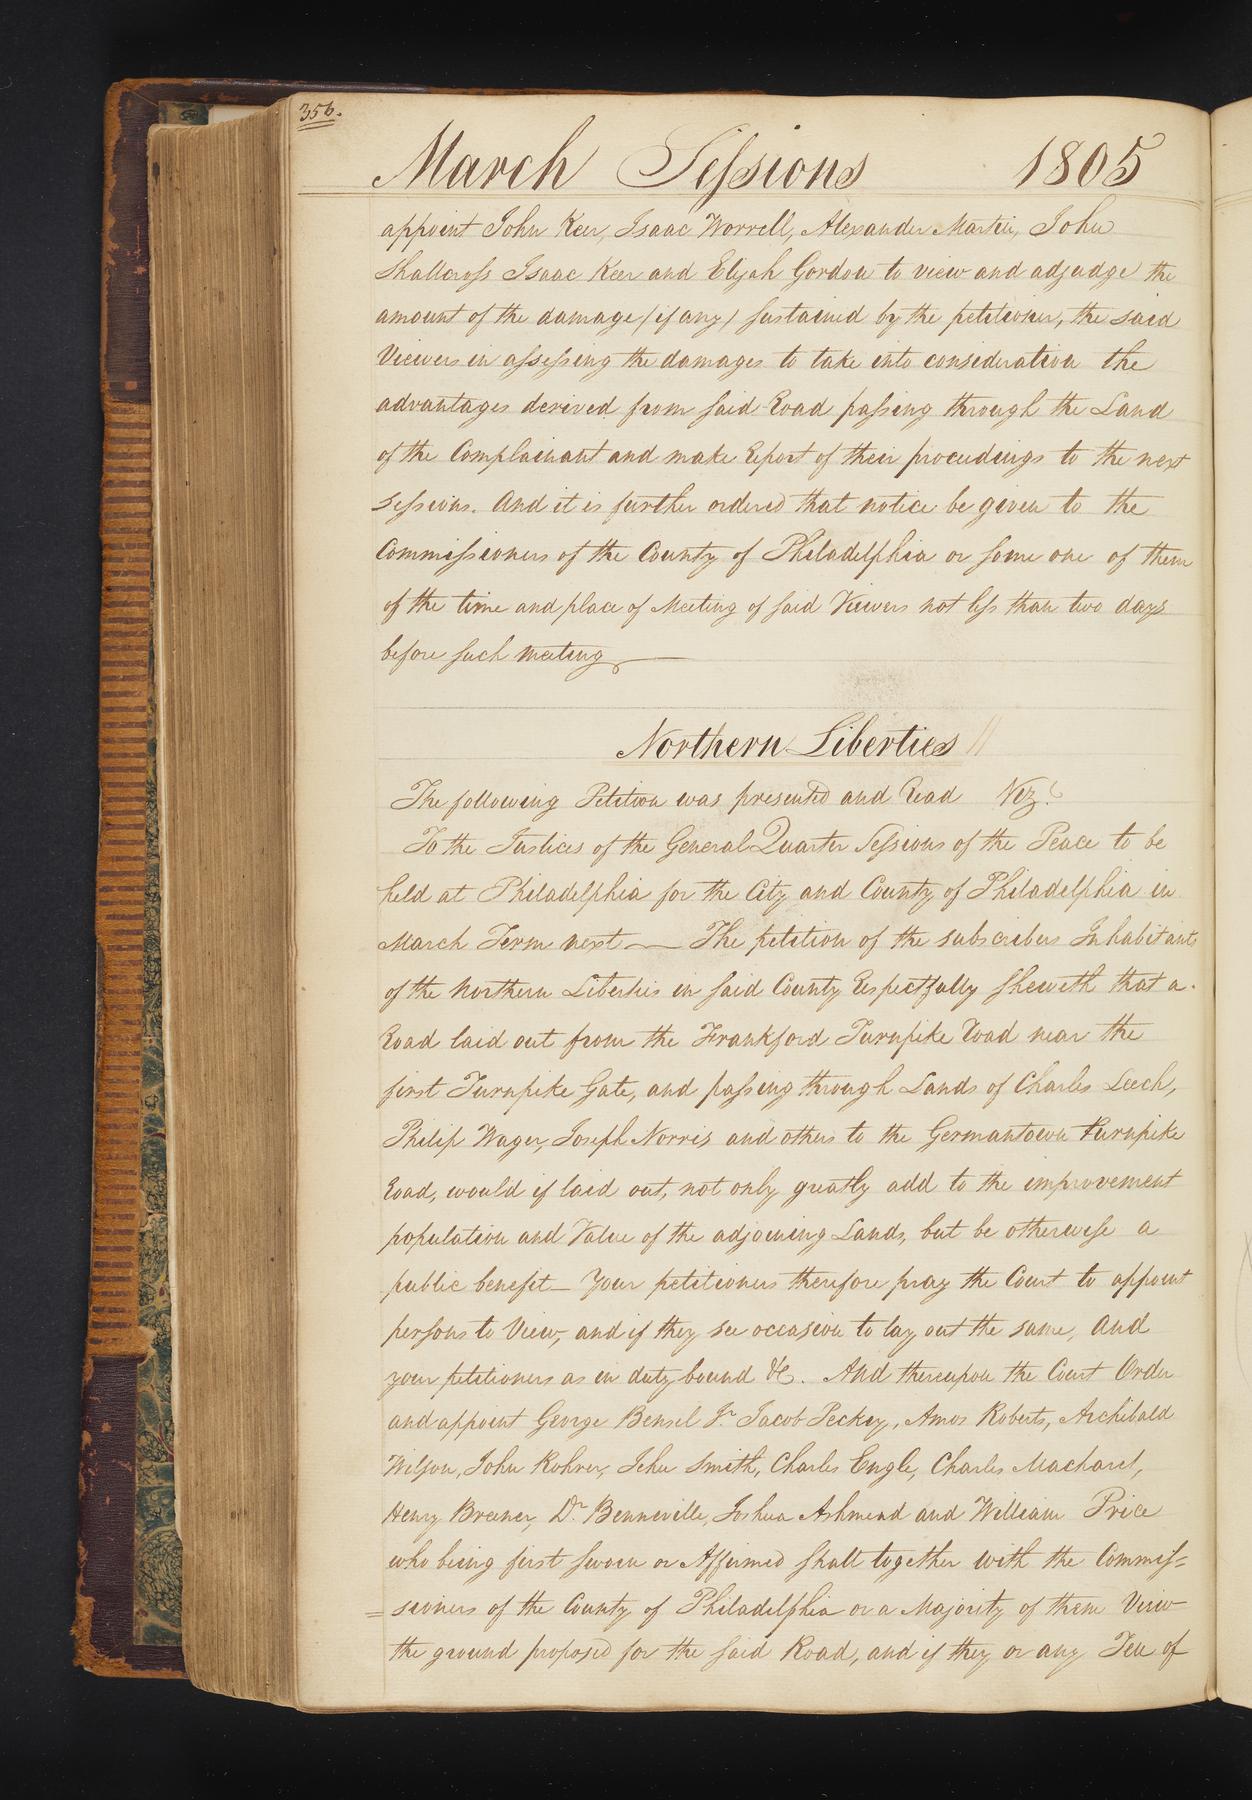 356.
March Sessions 1805
appoint John Keer, Isaac Worrell, Alexander Martin, John
Shallcross Isaac Keer and Elijah Gordon to view and adjudge the
amount of the damage (if any) sustained by the petitioner, the said
Viewers in assessing the damages to take into consideration the
advantages derived from said Road passing through the Land
of the Complainant and make Report of their proceedings to the next
Sessions. And it is further ordered that notice be given to the
Commissioners of the County of Philadelphia or some one of them
of the time and place of Meeting of said Viewers not less than two days
before such meeting
Northern Liberties
The following Petition was presented and Read Viz.
To the Justices of the General Quarter Sessions of the Peace to be
held at Philadelphia for the City and County of Philadelphia in
March Term next — The petition of the subscribers Inhabitants
of the Northern Liberties in said County Respectfully sheweth that a
Road laid out from the Frankford Turnpike Road near the
first Turnpike Gate, and passing through Lands of Charles Leech,
Philip Wager, Joseph Norris and others to the Germantown Turnpike
Road, would if laid out, not only greatly add to the improvement
population and Value of the adjoining Lands, but be otherwise a
public benefit — Your petitioners therefore pray the Court to appoint
persons to View, and if they see occasion to lay out the same, And
your petitioners as in duty bound &c. And thereupon the Court Order
and appoint George Bensel Jr. Jacob Peckey, Amos Roberts, Archibald
Wilson, John Rohrer, Jehu Smith, Charles Engle, Charles
Henry Dr. Benneville, Joshua Ashmead and William Price
who being first sworn or Affirmed shall together with the Commis=
=sioners of the County of Philadelphia or a Majority of them View
the ground proposed for the said Road, and if they or any Ten of